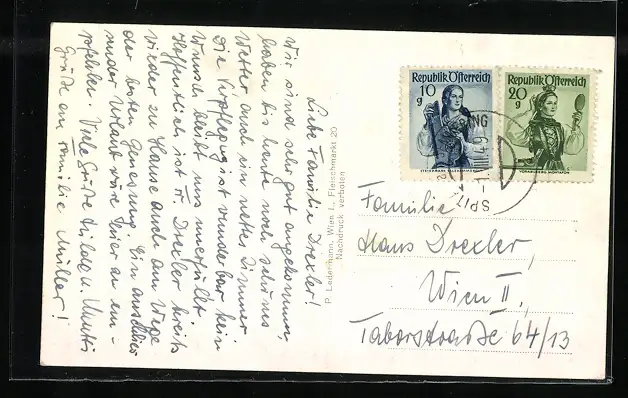 Liebe Familie Drexler!
Wir sind sehr gut angekommen,
haben bis heute noch schönes
Wetter auch ein nettes Zimmer
Die Verpflegung ist wunderbar kein
Wunsch bleibt uns unerfüllt
Hoffentlich ist Fr. Drexler bereits
wieder zu Hause auch am Wege
der besten Genesung. Ein anschlies
sender Urlaub wäre hier zu em-
pfehlen. Viele Grüße
Grüße an Familie Müller!
P. Ledermann, Wien I., Fleischmarkt 20
Nachdruck verboten
Republik Österreich
10
g
STEIERMARK
Republik Österreich
20
g
VORARLBERG MONTAFON
SPIT
Familie
Hans Drexler,
Wien II,
Taborstrasse 64/13